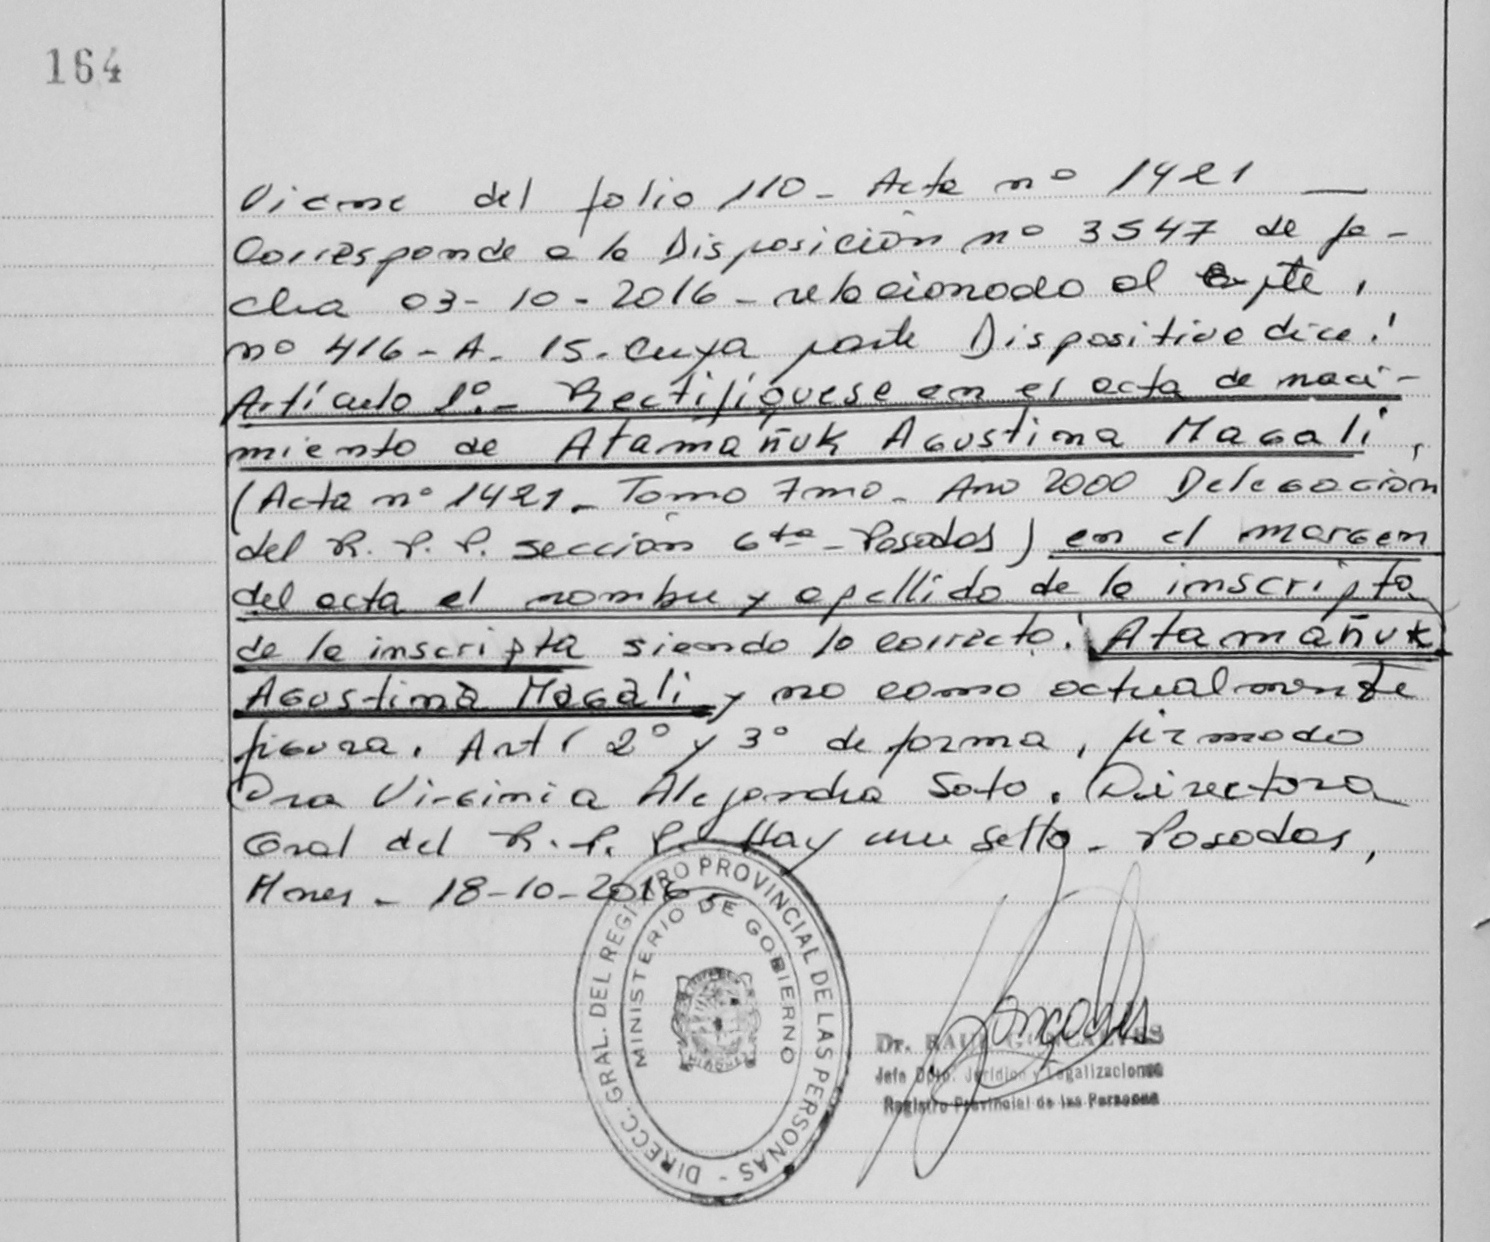 164
Viene del folio 110 - Acta nº 1421 —
Corresponde a la Disposición nº 3547 de fe-
cha 03-10-2016 - relacionado al Expte,
nº 416-A-15. cuya parte Dispositiva dice:
Artículo 1º.- Rectifíquese en el acta de naci-
miento de Atamañuk Agustina Magalí,
(Acta nº 1421 - Tomo 7mo - Año 2000 Delegación
del R. P. P. sección 6ta - Posadas) en el margen
del acta el nombre y apellido de la inscripta
de la inscripta siendo lo correcto: Atamañuk
Agustina Magali y no como actualmente
figura. Art( 2º y 3º de forma, firmado
Dra Virginia Alejandra Soto. Directora
Gral del R. P. P. Hay un sello - Posadas,
Mnes - 18-10-2016-
DIRECC. GRAL. DEL REGISTRO PROVINCIAL DE LAS PERSONAS -
MINISTERIO DE GOBIERNO
Dr. RAUL GONCALVES
Jefe Dpto. Jurídico y Legalizaciones
Registro Provincial de las Personas